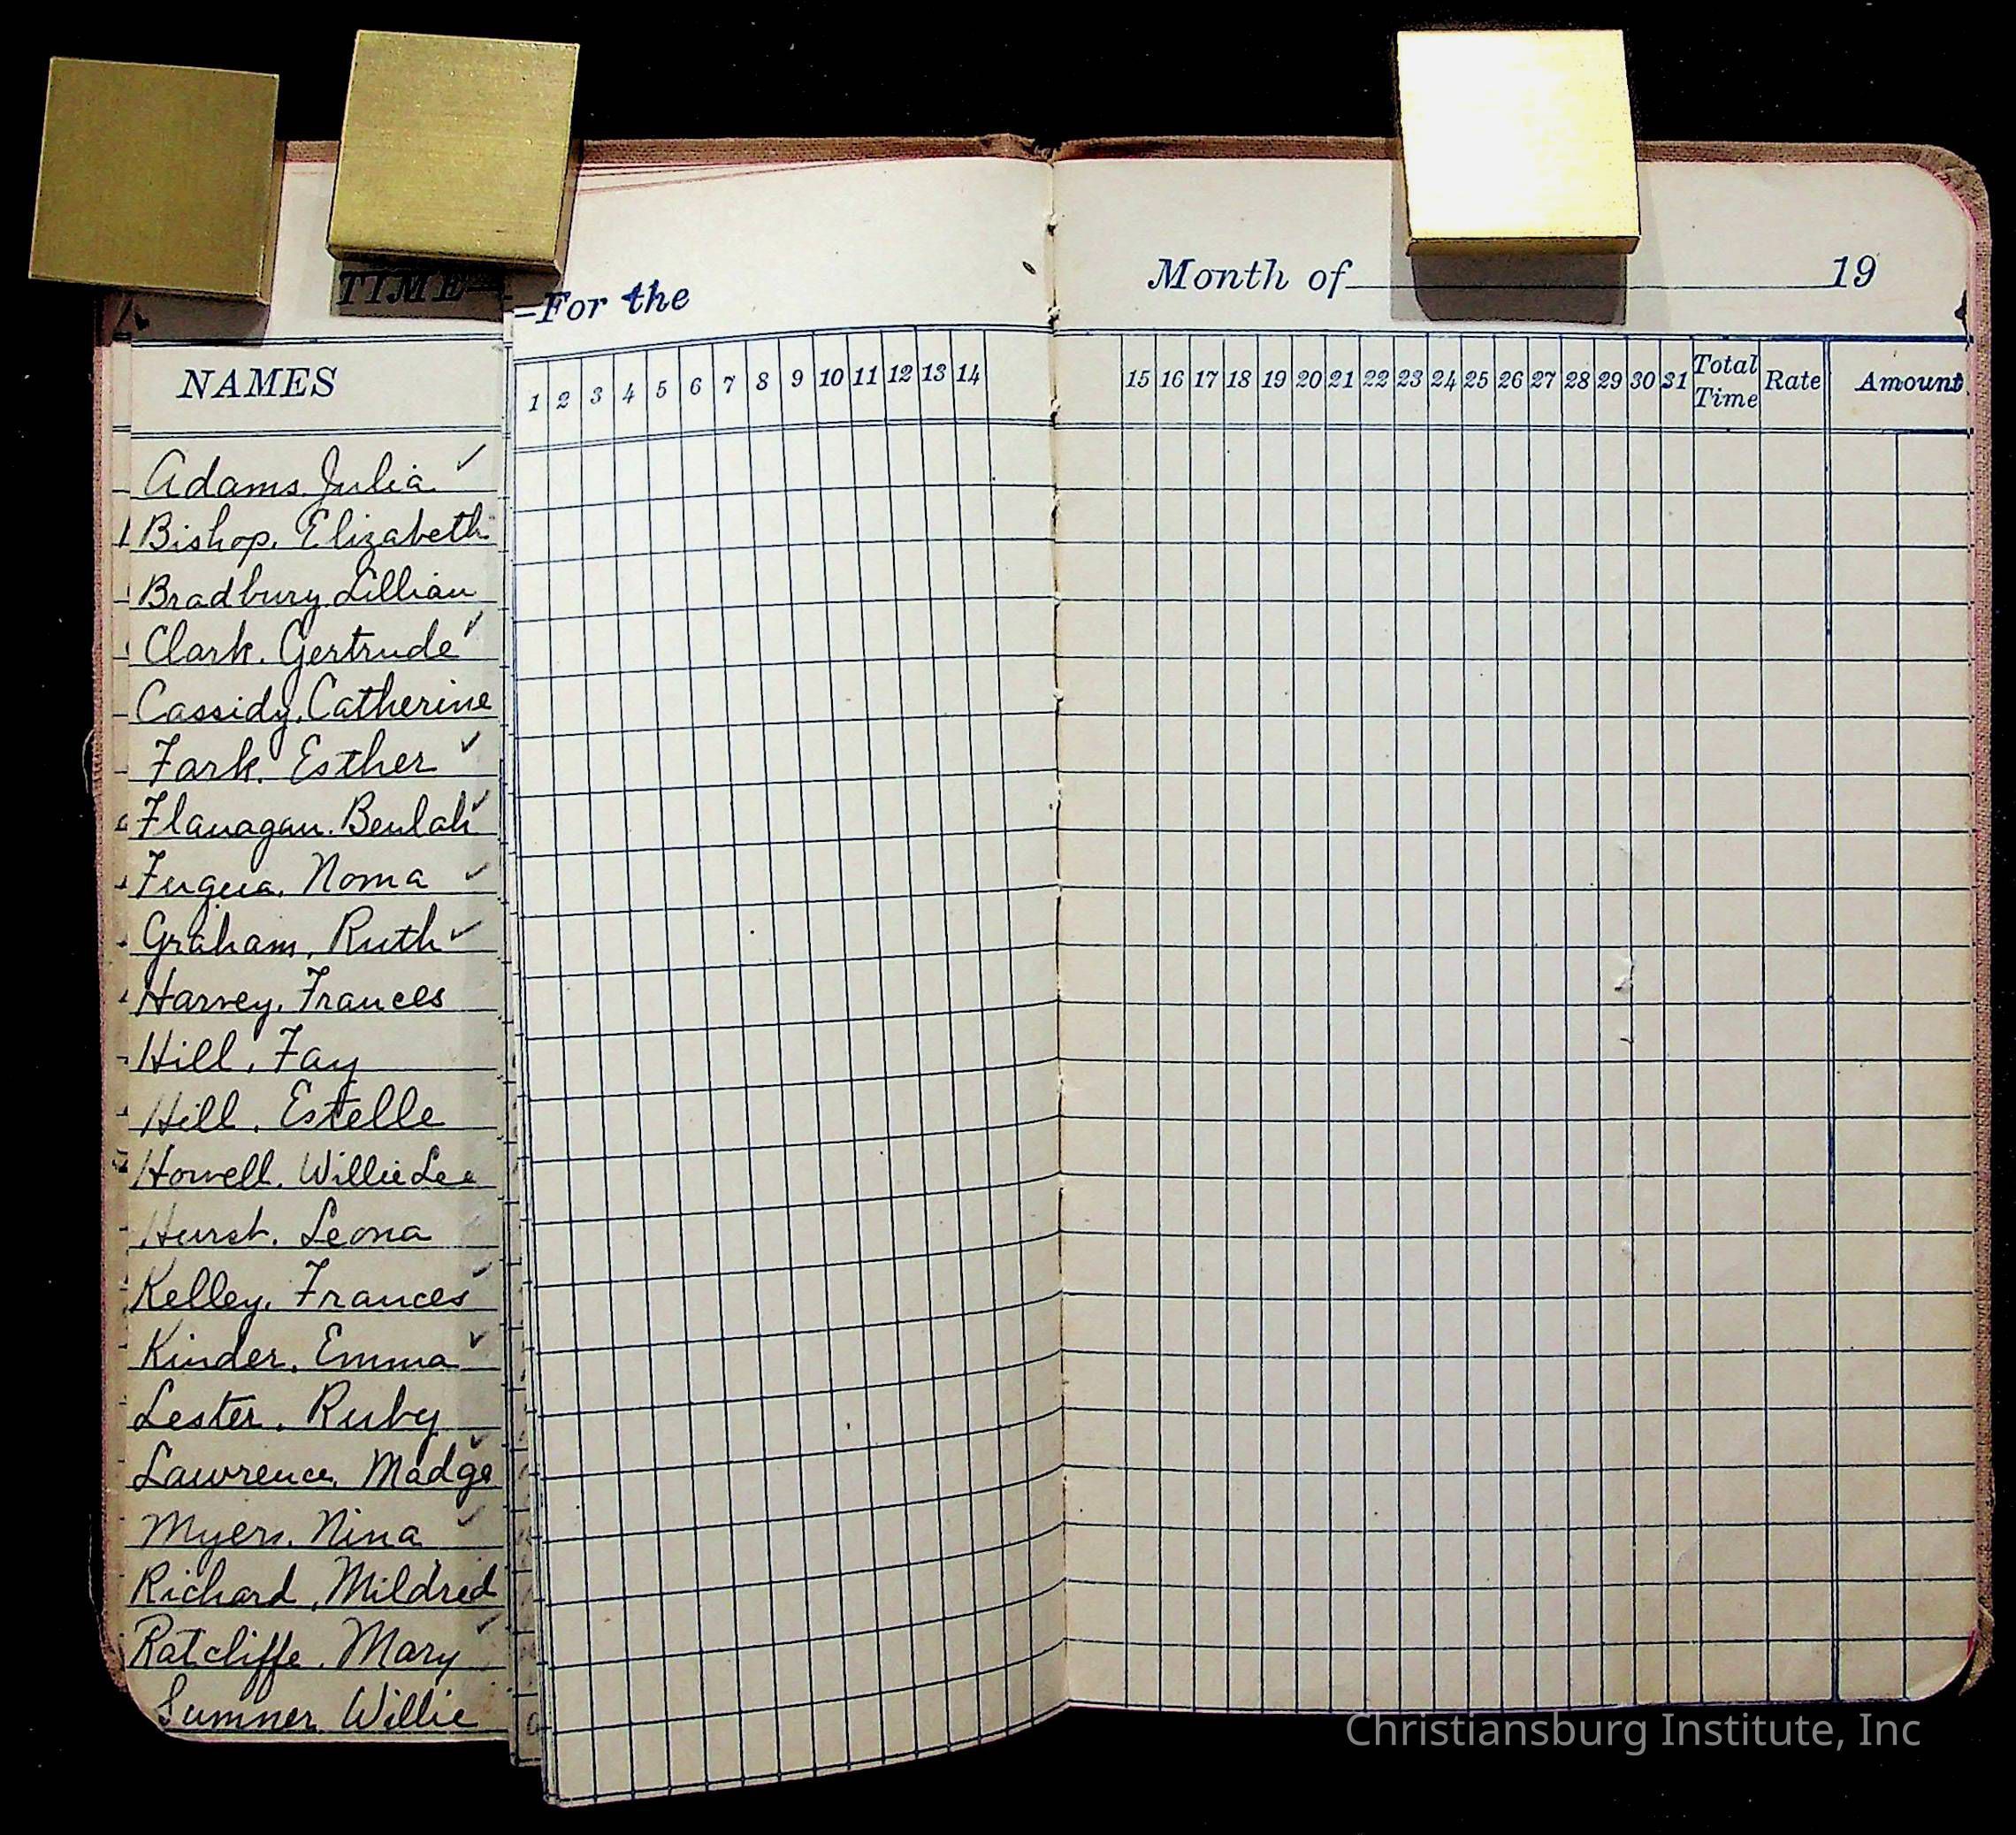 TIME—
—For the
Month of 19
NAMES
1 2 3 4 5 6 7 8 9 10 11 12 13 14
15 16 17 18 19 20 21 22 23 24 25 26 27 28 29 30 31 Total Time Rate Amount
Adams, Julia ✓
Bishop, Elizabeth
Bradbury, Lillian
Clark, Gertrude ✓
Cassidy, Catherine
Fark, Esther ✓
Flanagan, Beulah ✓
Fuqua, Noma ✓
Graham, Ruth ✓
Harvey, Frances
Hill, Fay
Hill, Estelle
Howell, Willie Lee
Hurst, Leona
Kelley, Frances ✓
Kinder, Emma ✓
Lester, Ruby
Lawrence, Madge ✓
Myers, Nina ✓
Richard, Mildred
Ratcliffe, Mary ✓
Sumner Willie
Christiansburg Institute, Inc